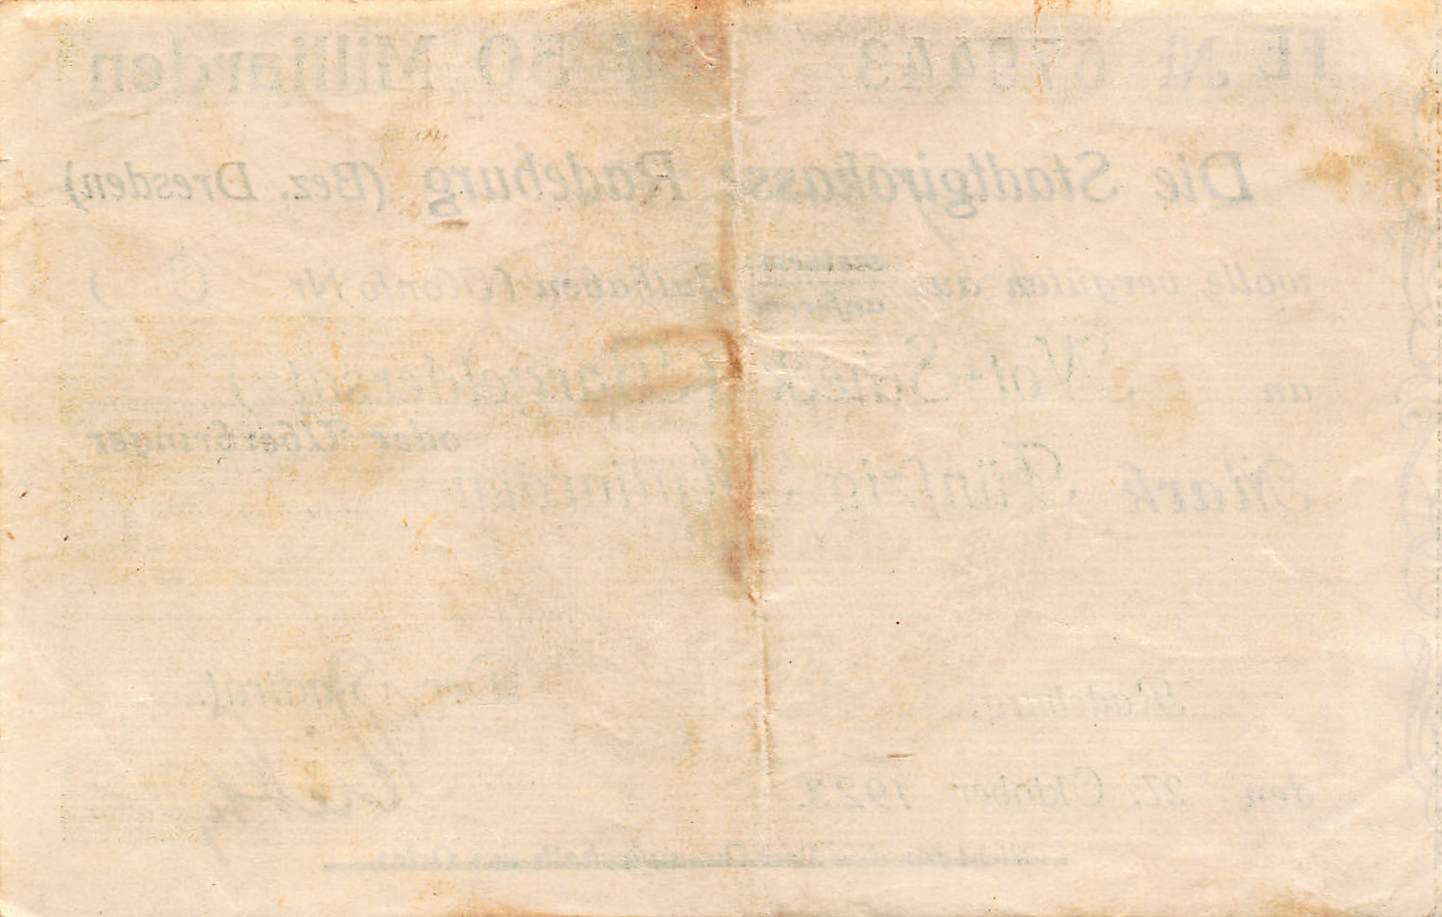 FE № 679443 M 50 Milliarden
Die Stadtgirokasse Radeburg (Bez. Dresden)
wolle vergüten aus meinem unserem Guthaben (Konto Nr C )
an Not-Scheck
oder Überbringer
Mark Fünfzig Milliarden
Radeburg, Der Stadtrat.
den 27. Oktober 1923.